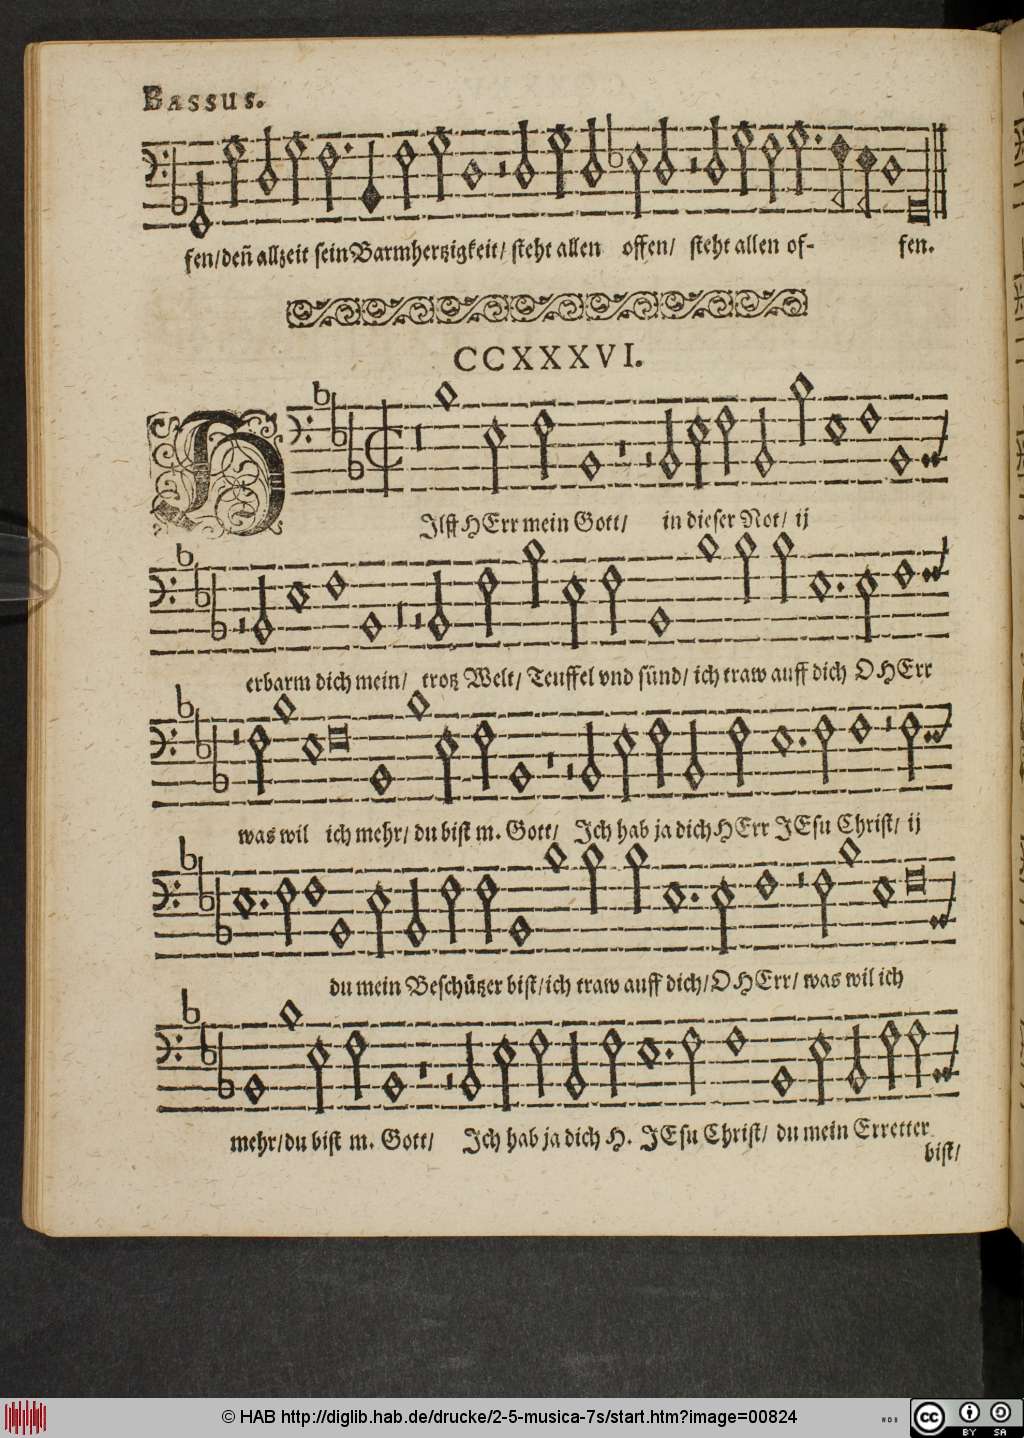 BASSUS.
fen/deñ allzeit sein Barmhertzigkeit/ steht allen offen/ steht allen of- fen.
CCXXXVI.
HIlff HErr mein Gott/ in dieser Not/ ij
erbarm dich mein/ trotz Welt/ Teuffel vnd sünd/ ich traw auff dich O HErr
was wil ich mehr/ du bist m. Gott/ Ich hab ja dich HErr JEsu Christ/ ij
du mein Beschützer bist/ich traw auff dich/O HErr/ was wil ich
mehr/du bist m. Gott/ Ich hab ja dich H. JEsu Christ/ du mein Erretter
bist/
© HAB http://diglib.hab.de/drucke/2-5-musica-7s/start.htm?image=00824
WDB
cc BY SA